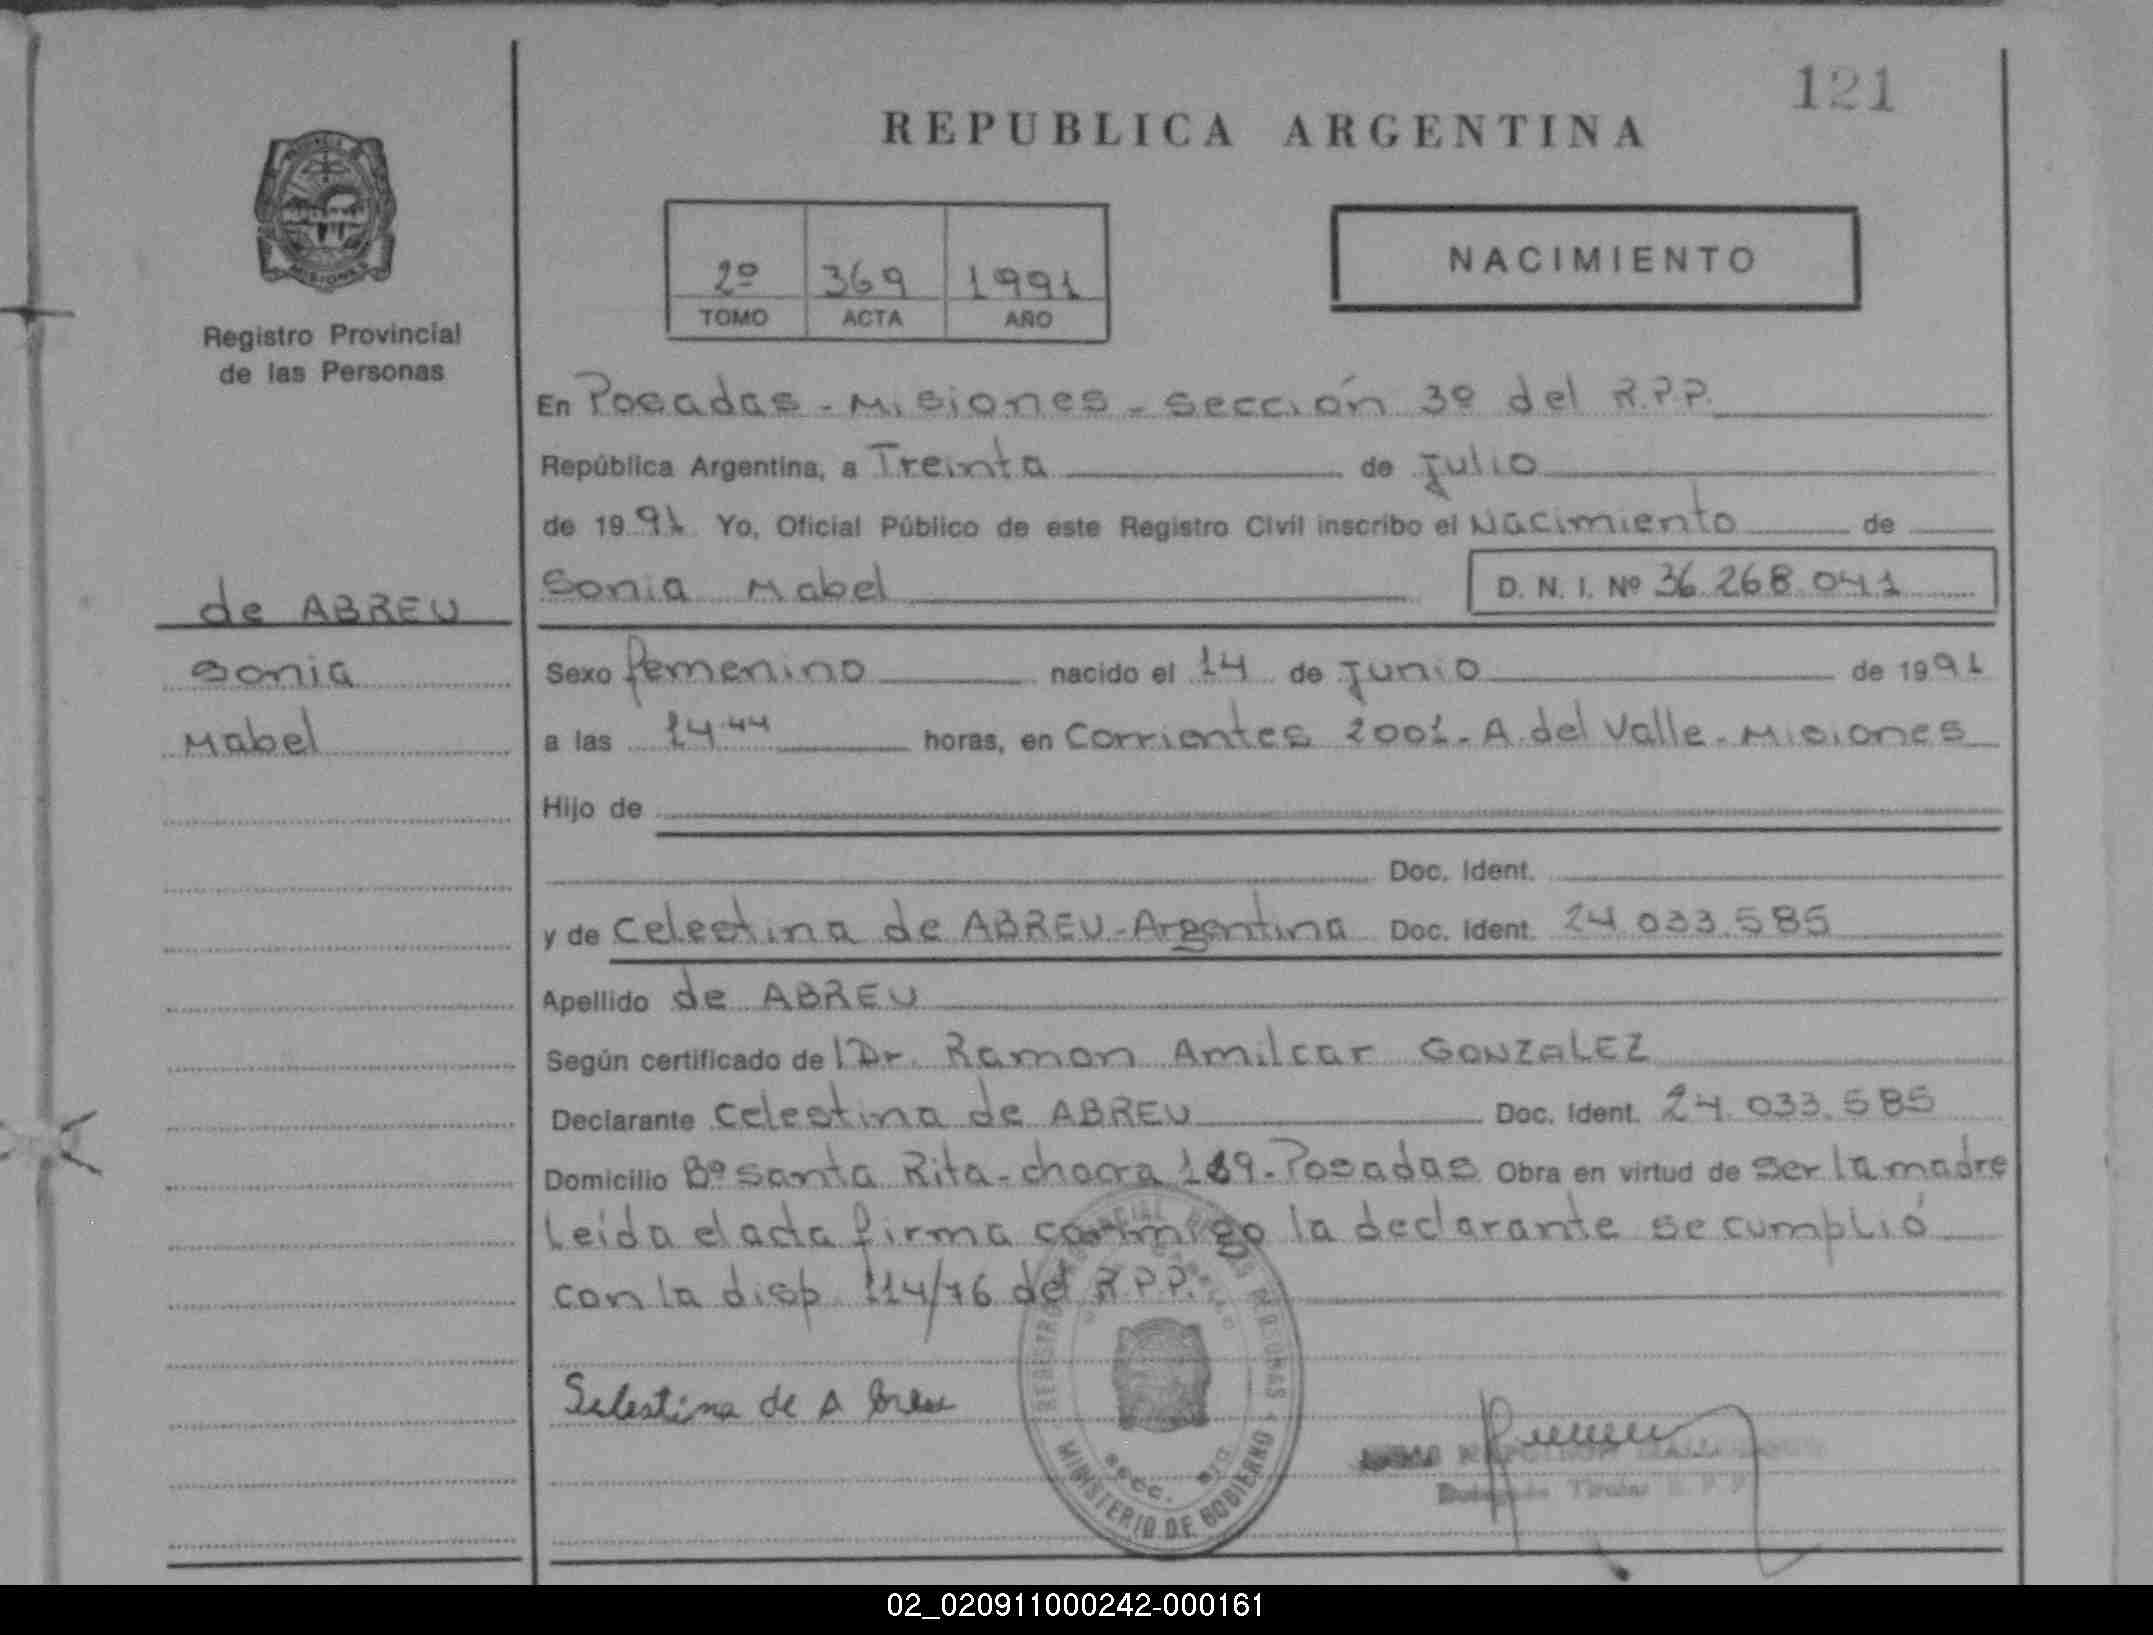 121
REPUBLICA ARGENTINA
MISIONES
Registro Provincial
de las Personas
2º 369 1991
TOMO ACTA AÑO
NACIMIENTO
En Posadas - Misiones - sección 3º del R.P.P.
República Argentina, a Treinta de Julio
de 1991 Yo, Oficial Público de este Registro Civil inscribo el Nacimiento de
Sonia Mabel D. N. I. Nº 36.268.041
de ABREU
Sonia
Mabel
Sexo femenino nacido el 14 de Junio de 1991
a las 14 44 horas, en Corrientes 2001 - A. del Valle - Misiones
Hijo de
Doc. Ident.
y de Celestina de ABREU - Argentina Doc. Ident. 24.033.585
Apellido de ABREU
Según certificado de Dr. Ramon Amilcar GONZALEZ
Declarante Celestina de ABREU Doc. Ident. 24.033.585
Domicilio Bº Santa Rita - chacra 189 - Posadas Obra en virtud de ser la madre
Leida el acta firma conmigo la declarante se cumplió
con la disp 114/76 del R.P.P.
Selestina de A breu
REGISTRO PERSONAS
secc. 3ra.
MINISTERIO DE GOBIERNO
Titular R.P.P.
02_020911000242-000161